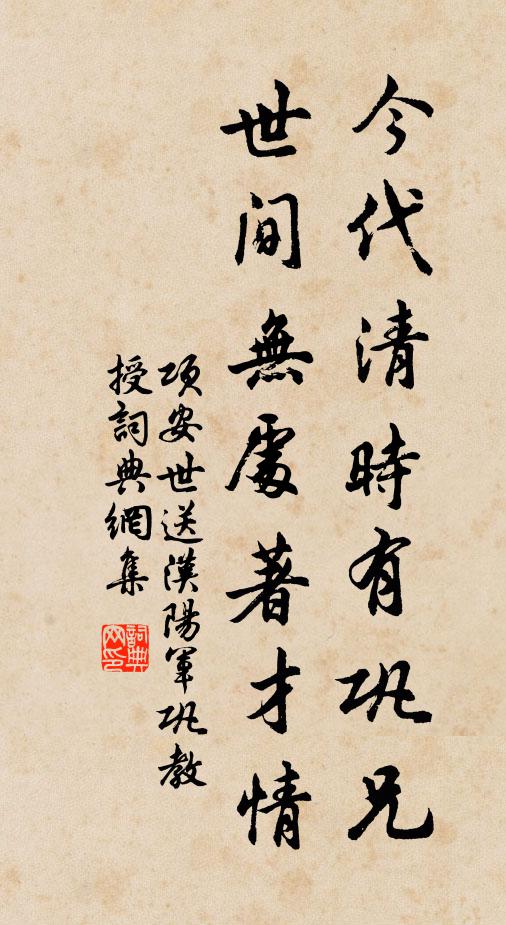 今代清時有巩兄
世间無處著才情
項安世送漢陽軍巩教
授詞典網集
詞典網印